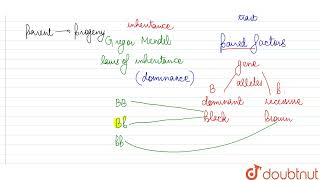 inheritance
trait
Parent → Progeny
Gregor Mendel
Paired factors
laws of inheritance
gene
(dominance)
alleles
B B
BB dominant recessive
Bb black brown
bb
doubtnut